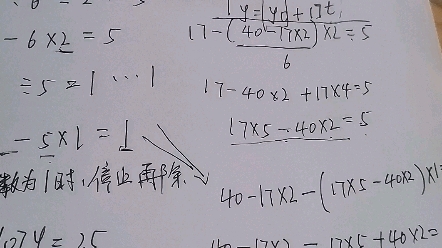 - 6×2 = 5
÷5 = 1 ··· 1
- 5×1 = 1
数为1时,停止再除
17-(40-17×2)×2=5
6
17-40×2+17×4=5
17×5-40×2=5
40-17×2-(17×5-40×2)×1
40-17×2-17×5+40×2=